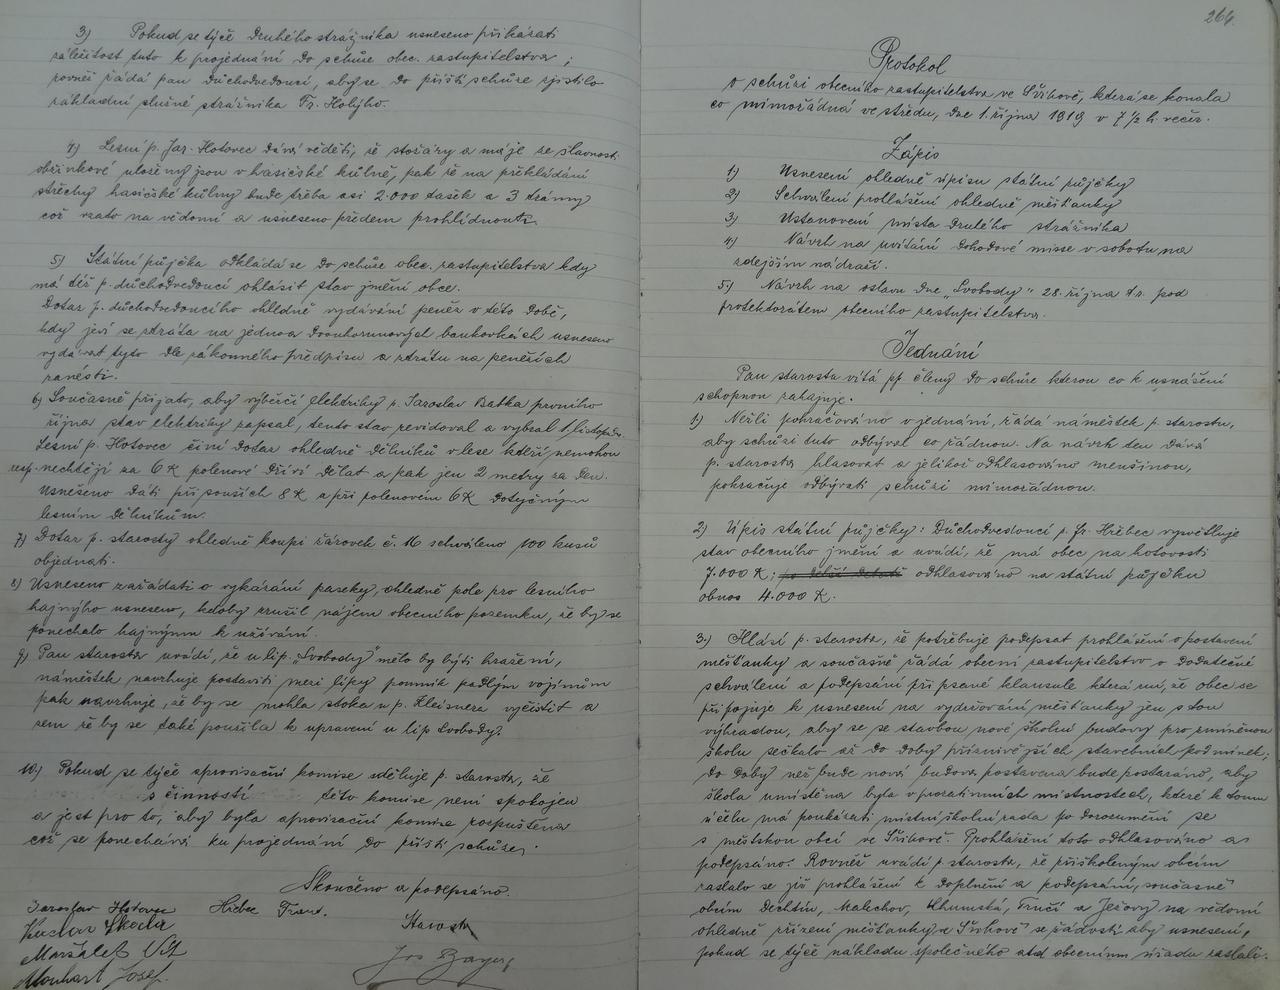 3) Pokud se týče druhého strážníka usneseno přikázati
záležitost tuto k projednání do schůze obec. zastupitelstva,
rovněž žádá pan důchodvedoucí, aby se do příští schůze zjistilo
základní služné strážníka Fr. Holýho.
4) Lesní p. Jar. Hotovec dává věděti, že stožáry a máje ze slavnosti
obžinkové uloženy jsou v hasičské kůlně, pak že na překládání
střechy hasičské kůlny bude třeba asi 2.000 tašek a 3 trámy
což vzato na vědomí a usneseno předem prohlédnouti.
5) Státní půjčka odkládá se do schůze obec. zastupitelstva kdy
má též p. důchodvedoucí ohlásit stav jmění obce.
Dotaz p. důchodvedoucího ohledně vydávání peněz v této době,
kdy jeví se ztráta na jedno a dvoukorunových bankovkách usneseno
vydávat tyto dle zákonného předpisu a ztrátu na penězích
zanésti.
6) Současně přijato, aby výběrčí elektriky p. Jaroslav Batka prvního
října stav elektriky zapsal, tento stav revidoval a vybral 1. listopadu.
Lesní p. Hotovec činí dotaz ohledně dělníků v lese kteří nemohou
resp. nechtějí za 6 K polenové dříví dělat a pak jen 2 metry za den.
Usneseno dáti při souších 8 K a při polenovém 6 K dotyčným
lesním dělníkům.
7) Dotaz p. starosty ohledně koupi žárovek č. 16 schváleno 100 kusů
objednati.
8) Usneseno zažádati o vykázání paseky, ohledně pole pro lesního
hajného usneseno, kdoby zrušil nájem obecního pozemku, že by se
ponechalo hajným k užívání.
9) Pan starosta uvádí, že u líp. „Svobody" mělo by býti hrazení,
náměstek navrhuje postaviti mezi lípy pomník padlým vojínům
pak navrhuje, že by se mohla stoka u p. Kleisnera vyčistit a
zem že by se také použila k upravení u líp Svobody.
10.) Pokud se týče aprovisační komise uděluje p. starosta, že
s činností této komise není spokojen
a jest pro to, aby byla aprovisační komise rozpuštěna
což se ponechává ku projednání do příští schůze.
Skončeno a podepsáno.
Jaroslav Hotovec Hřebec Frant.
Václav Škoda Starosta
Maršálek Vít
Jos Bayer
Monhart Josef.
264.
Protokol
o schůzi obecního zastupitelstva ve Švihově, která se konala
co mimořádná ve středu, dne 1. října 1919 v 7 1/2 h. večer.
Zápis
1) Usnesení ohledně úpisu státní půjčky
2) Schválení prohlášení ohledně měšťanky
3) Ustanovení místa druhého strážníka
4) Návrh na uvítání dohodové misse v sobotu na
zdejším nádraží.
5.) Návrh na oslavu dne „Svobody" 28. října t.r. pod
protektorátem obecního zastupitelstva.
Jednání
Pan starosta vítá pp. členy do schůze kterou co k usnášení
schopnou zahajuje.
1.) Nežli pokračováno v jednání, žádá náměstek p. starostu,
aby schůzi tuto odbýval co řádnou. Na návrh ten dává
p. starosta hlasovat a jelikož odhlasováno menšinou,
pokračuje odbývati schůzi mimořádnou.
2) Úpis státní půjčky: Důchodvedoucí p. Fr. Hřebec vysvětluje
stav obecního jmění a uvádí, že má obec na hotovosti
7.000 K; odhlasováno na státní půjčku
obnos 4.000 K.
3.) Hlásí p. starosta, že potřebuje podepsat prohlášení o postavení
měšťanky a současně žádá obecní zastupitelstvo o dodatečné
schválení a podepsání připsané klausule která zní, že obec se
připojuje k usnesení na vydržování měšťanky jen s tou
výhradou, aby se se stavbou nové školní budovy pro zmíněnou
školu sečkalo až do doby příznivějších stavebních podmínek;
do doby než bude nová budova postavena bude postaráno, aby
škola umístěna byla v prozatimních místnostech, které k tomu
účelu má poukázati místní školní rada po dorozumění se
s městskou obcí ve Švihově. Prohlášení toto odhlasováno a
podepsáno. Rovněž uvádí p. starosta, že přiškoleným obcím
zaslalo se již prohlášení k doplnění a podepsání, současně
obcím Dehtín, Malechov, Chumská, Třučí a Ježovy na vědomí
ohledně zřízení měšťanky ve Švihově se žádostí aby usnesení,
pokud se týče nákladu společného atd obecnímu úřadu zaslali.